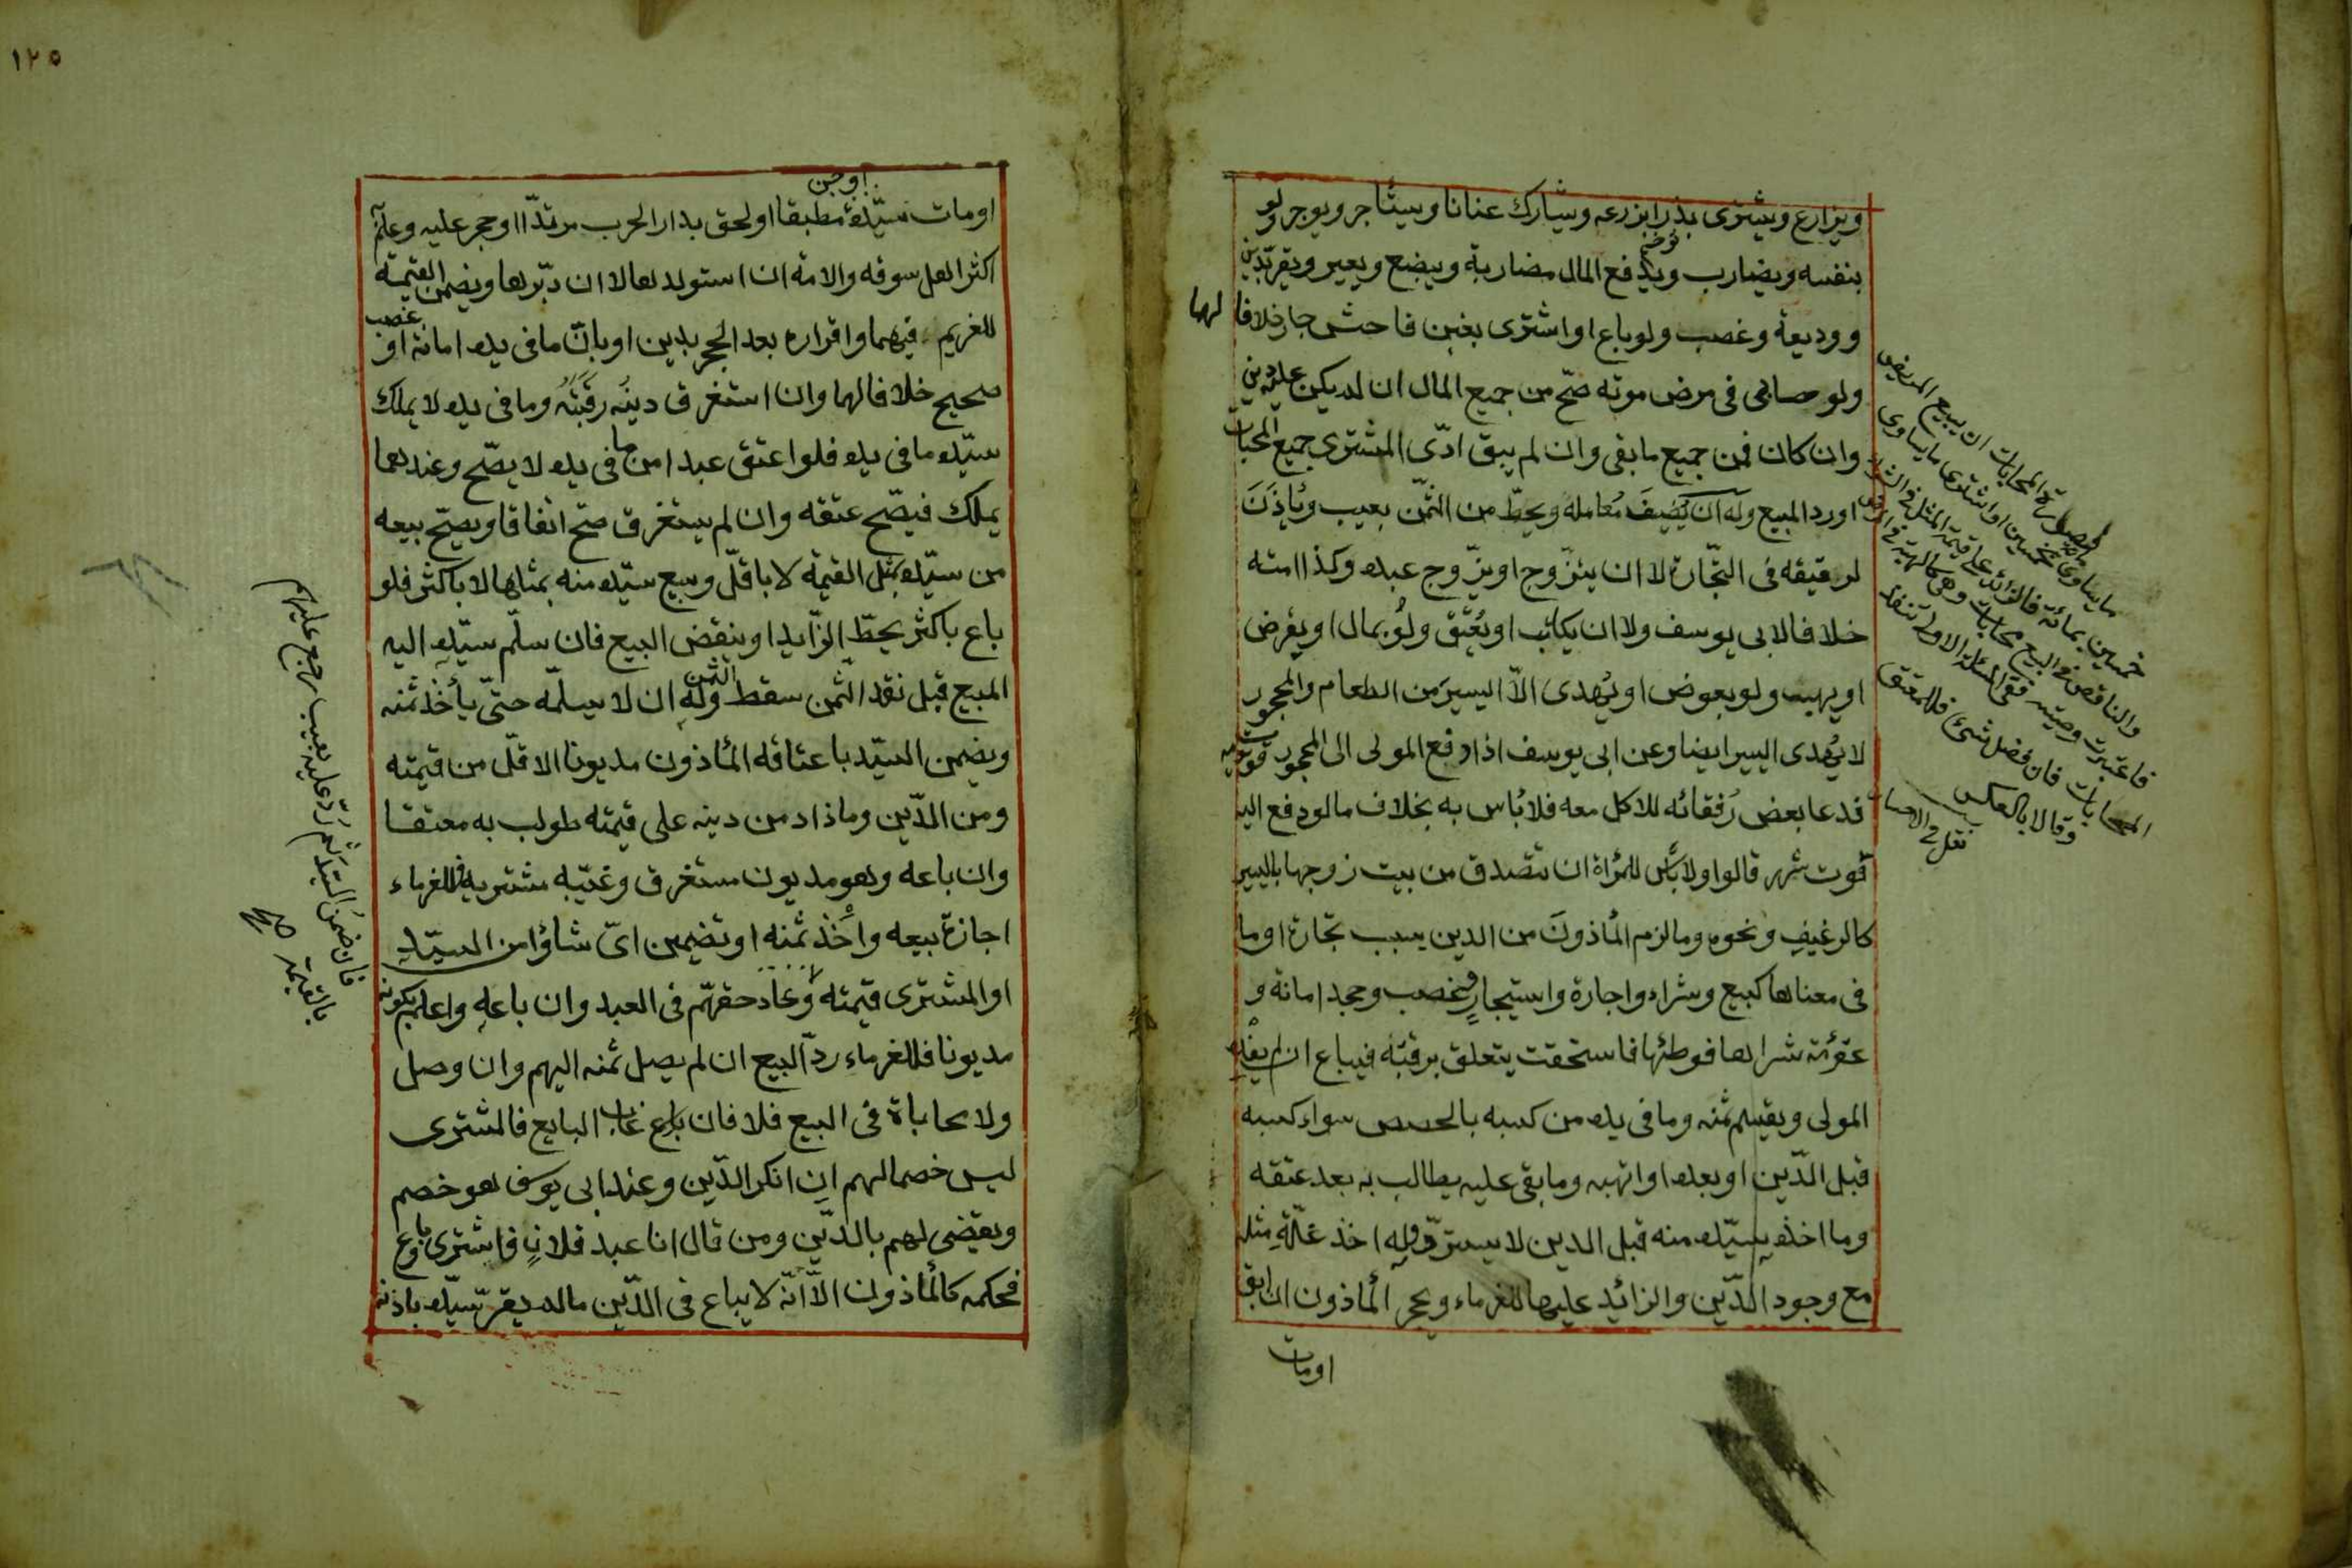 ويزارع ويشترى بذرا يزرعه ويشارك عنانا ويستأجر ويوجر ولو
بنفسه ويضارب ويدفع المال مضاربة ويبضع ويعير ويقر بدين
ووديعة وغصب ولو باع او اشترى بغبن فاحش جاز خلافا لهما
ولو حابى فى مرض موته صحّ من جميع المال ان لم يكن عليه دين
وان كان فمن جميع ما بقى وان لم يبق ادّى المشترى جميع المحابات
او رد المبيع وله ان يُضيفَ مُعامله ويحطّ من الثمّن بعيب ويُأذِنَ
لرقيقه فى التجّارة لا ان يتزّوج او يزّوج عبده وكذا امته
خلافا لابى يوسف ولا ان يكاتب او يُعتق ولو بمال او يقرض
او يهب ولو بعوض او يُهدى الاّ اليسيرَ من الطعام والمحجور
لا يُهدى اليسير ايضا وعن ابى يوسف اذا دفع المولى الى المحجور قوت يومه
فدعا بعض رُفقائه للاكل معه فلا بُاس به بخلاف ما لو دفع اليه
قوت شهر قالوا ولا بأس للمرأة ان تتصدق من بيت زوجها باليسير
كالرغيفِ ونحوه وما لزم المأذونَ من الدين بسبب تجارة او ما
فى معناها كبيع وشراء واجارة واستيجارٍ وغصب وجحد امانة و
عقر امة شراها فوطئها فاستحقت يتعلق برقبته فيباع ان لم يفده
المولى ويقسم ثمنه وما فى يده من كسبه بالحصص سواء كسبه
قبل الدّين او بعده او اتهبه وما بقى عليه يطالب به بعد عتقه
وما اخذه سيّده منه قبل الدين لا يستردّ وله اخذ غلّةِ مثله
مع وجود الدّين والزائد عليها للغرماء ويحجر المأذون ان ابق
او مات
صورة المحابات ان يبيع المريض
ما يساوى مائة بخمسين او اشترى ما يساوى
خمسين بمائة فالزائد على قيمة المثل فى الشراء
والناقص فى البيع محابات وهى كالهبة فى المرض
فاعتبرت وصية ففى المسئلة الاولى تنفذ
المحابات فان فضل شئ فللمعتق
وقالا بالعكس
١٢٥
او مات سيّده او جن مطبقا او لحق بدار الحرب مرتدّا او حجر عليه وعلم
اكثر اهل سوقه والامة ان استولدها لا ان دبّرها ويضمن القيمة
للغريم فيهما واقراره بعد الحجر بدين او بانّ ما فى يده امانة او غصب
صحيح خلافا لهما وان استغرق دينُه رقبَتَهُ وما فى يده لا يملك
سيّده ما فى يده فلو اعتق عبدا من ما فى يده لا يصّح وعندهما
يملك فيصّح عتقه وان لم يستغرق صّح اتفاقا ويصّح بيعه
من سيّده بمثل القيمة لا باقلّ وبيع سيّده منه بمثلها لا باكثر فلو
باع باكثر يحطّ الزّايد او ينقض البيع فان سلّم سيّده اليه
المبيع قبل نقد الثّمن سقط الثّمن وله ان لا يسلّمه حتّى يأخذ ثمنه
ويضمن السيّد باعتاقه المأذون مديونا الاقلّ من قيمته
ومن الدّين وما زاد من دينه على قيمته طولب به معتقا
وان باعه وهو مديون مستغرق وغيّبه مشتريه فللغرماء
اجازة بيعه واخذ ثمنه او تضمين اىّ شاؤا من السيّد
او المشترى قيمته وعاد حقهّم فى العبد وان باعه واعلم بكونه
مديونا فللغرماء ردّ البيع ان لم يصل ثمنه اليهم وان وصل
ولا محاباة فى البيع فلا فان غاب البايع فالمشترى
ليس خصما لهم ان انكر الدّين وعند ابى يوسف هو خصم
ويقضى لهم بالدّين ومن قال انا عبد فلانٍ فاشترى وباع
فحكمه كالمأذون الاّ انّه لا يباع فى الدّين ما لم يقرّ سيّده باذنه
فان ضمن السيّد ثم ردّ عليه بعيب رجع عليهم
بالقيمة صح